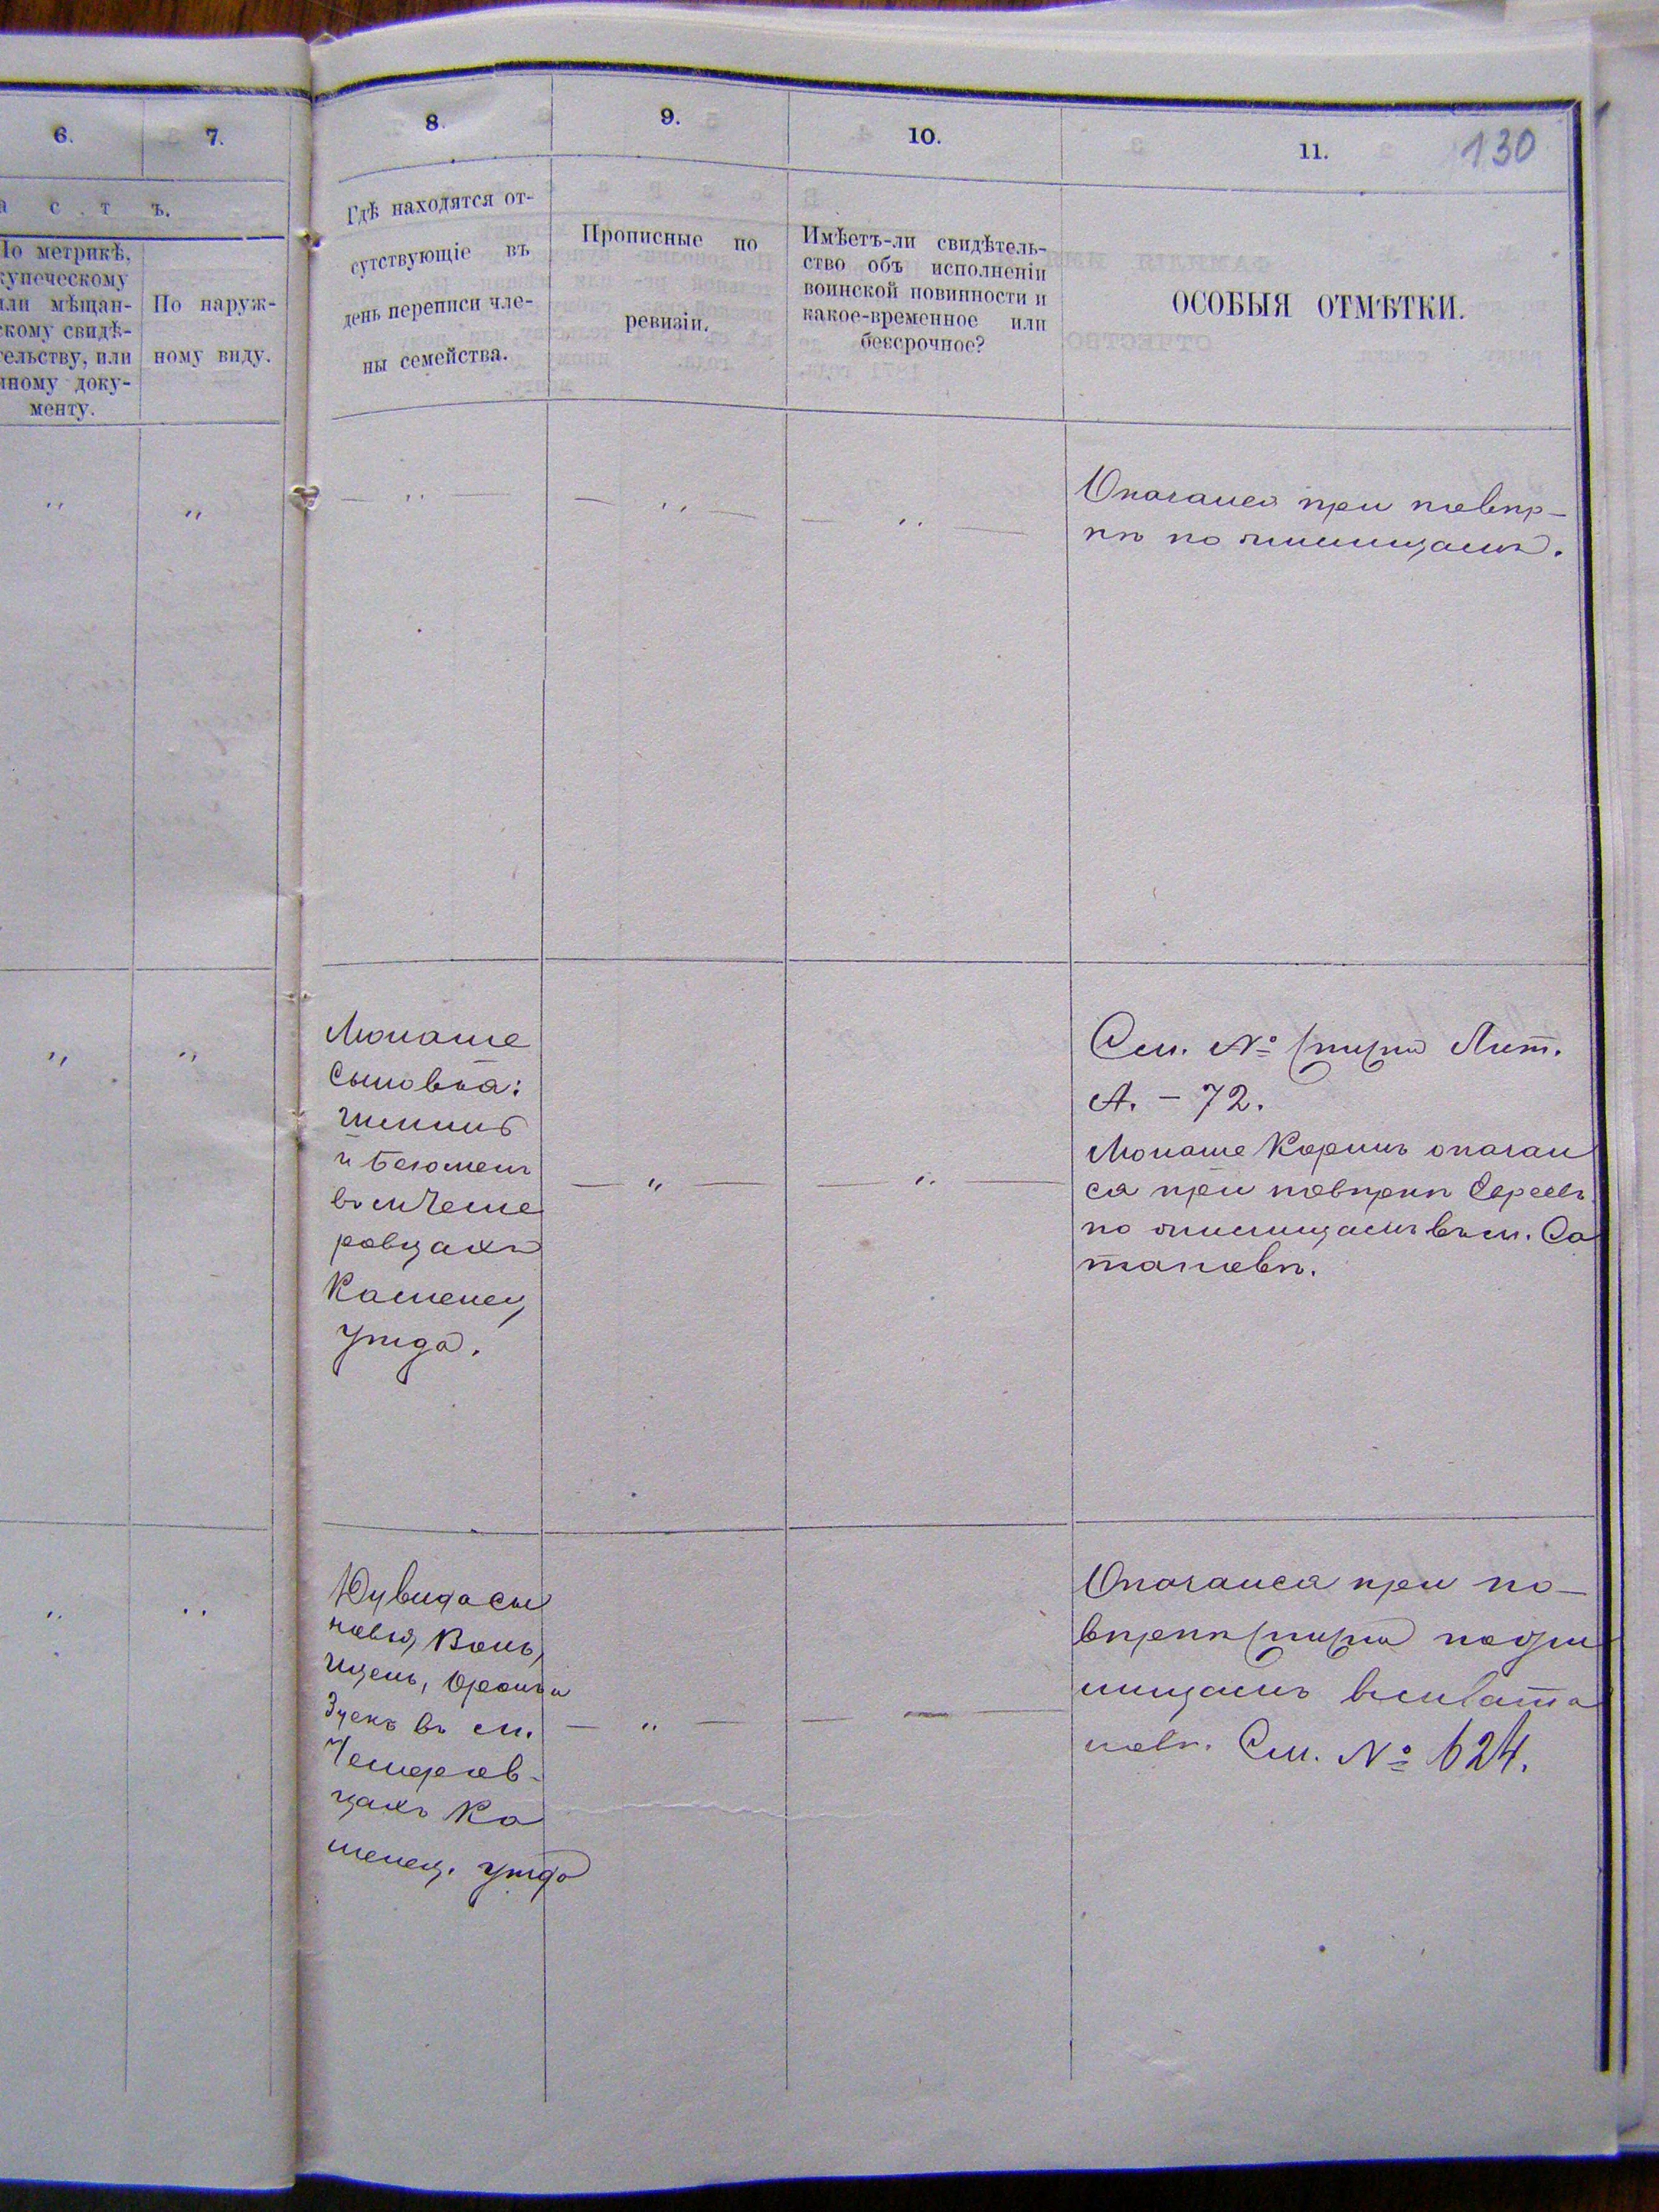 6.
7.
8.
9.
10.
11.
130
а с т ъ.
По метрикѣ,
купеческому
или мѣщан-
скому свидѣ-
тельству, или
иному доку-
менту.
По наруж-
ному виду.
Гдѣ находятся от-
сутствующіе въ
день переписи чле-
ны семейства.
Прописные по
ревизіи.
Имѣетъ-ли свидѣтель-
ство объ исполненіи
воинской повинности и
какое-временное или
бессрочное?
ОСОБЫЯ ОТМѢТКИ.
Оказался при повѣр-
кѣ по жилищамъ.
Монаше
сыновья:
въ м Чеме
ровцахъ
Каменец
уѣзда.
См. № Лит.
А. – 72.
Монаше Коринъ оказал
ся при повѣркѣ Евреевъ
по жилищамъ въ м. Са
тановѣ.
сы
новья,
въ м.
Чемеров-
цахъ Ка
менец. уѣзда
Оказался при по-
вѣркѣ по жи
лищамъ въ м Сата
новѣ. См. № 624.